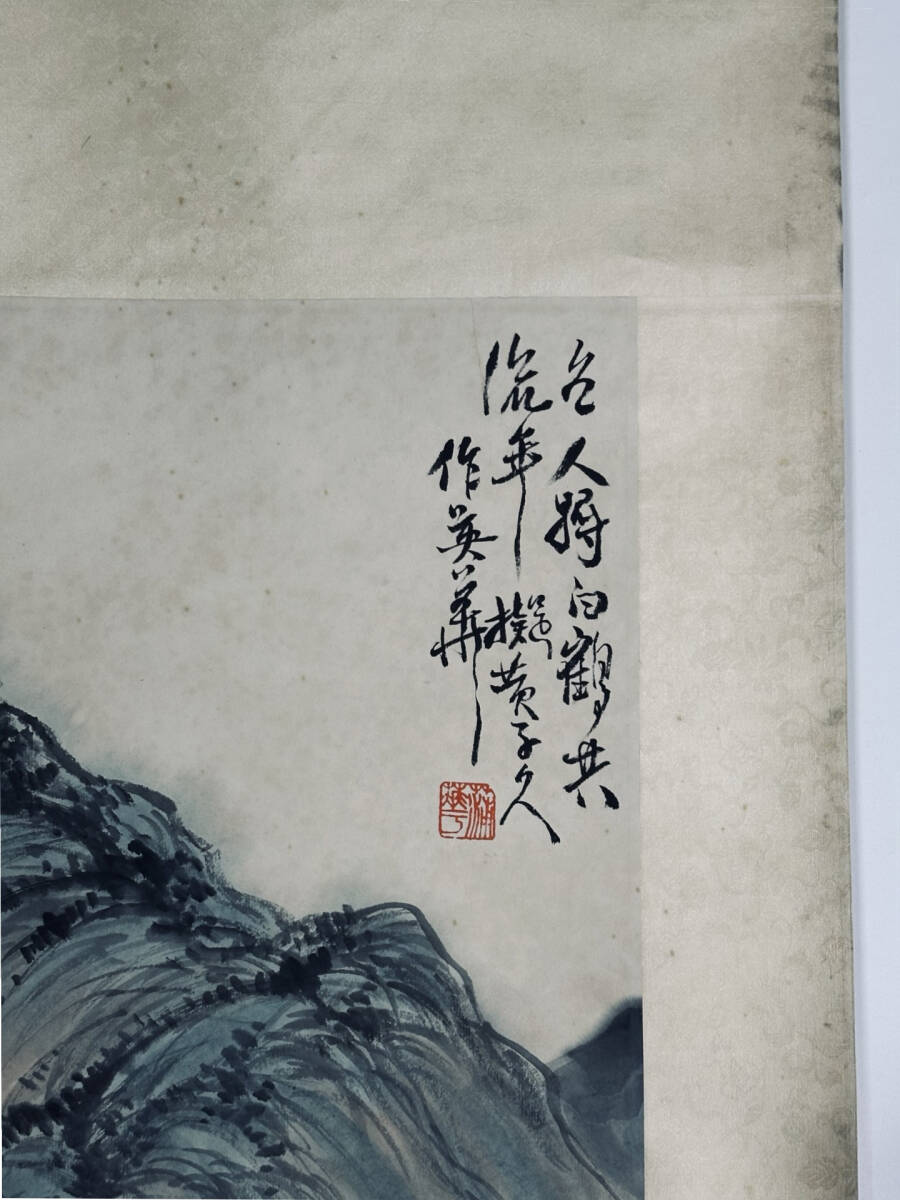 人白鶴共
流年擬黃子久
作英華